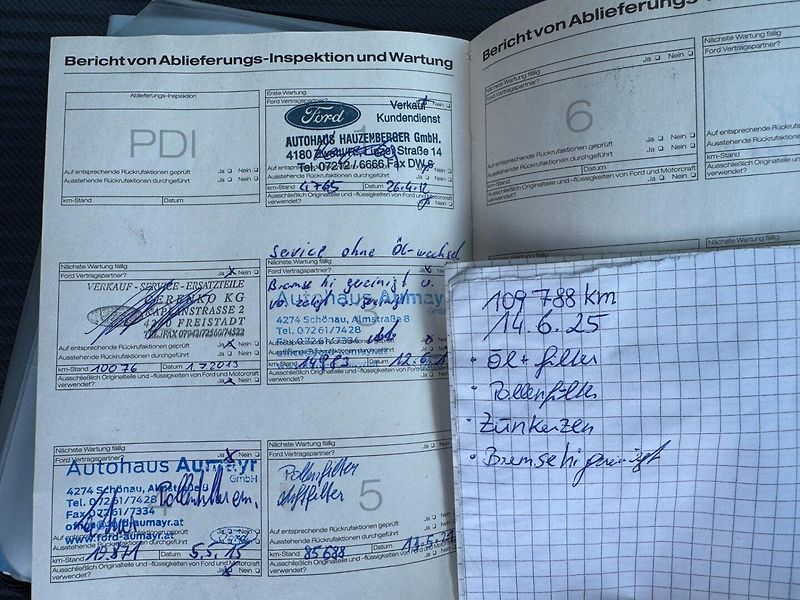 Bericht von Ablieferungs-Inspektion und Wartung
Ablieferungs-Inspektion
PDI
Auf entsprechende Rückrufaktionen geprüft Ja Nein
Ausstehende Rückrufaktionen durchgeführt Ja Nein
km-Stand Datum
Erste Wartung
Ford Vertragspartner? Ja Nein
Ford
Verkauf
Kundendienst
AUTOHAUS HAUZENBERGER GmbH.
4180 Linzer Straße 14
Tel. 07212/6666 Fax DW
Auf entsprechende Rückrufaktionen geprüft
Ausstehende Rückrufaktionen durchgeführt
km-Stand 4765 Datum 26.4.12
Ausschließlich Originalteile und -flüssigkeiten von Ford und Motorcraft
verwendet?
Nächste Wartung fällig
Ford Vertragspartner? Ja Nein
VERKAUF - SERVICE - ERSATZTEILE
KG
2
FREISTADT
Auf entsprechende Rückrufaktionen geprüft Ja Nein
Ausstehende Rückrufaktionen durchgeführt Ja Nein
km-Stand 10076 Datum 1.7.2013
Ausschließlich Originalteile und -flüssigkeiten von Ford und Motorcraft
verwendet? Ja Nein
Service ohne Öl-wechsel
Nächste Wartung fällig
Ford Vertragspartner? Ja Nein
Bremse hi gereinigt u.
Autohaus Aumayr
GmbH
4274 Schönau, Almstraße 8
Tel. 07261/7428
Fax 07261/7334
km-Stand 14983 Datum
Ausschließlich Originalteile und -flüssigkeiten von Ford und Motorcraft
verwendet?
Nächste Wartung fällig
Ford Vertragspartner? Ja Nein
Autohaus Aumayr
GmbH
4274 Schönau, Almstraße 8
Tel. 07261/7428
Fax 07261/7334
office@ford-aumayr.at
www.ford-aumayr.at
Pollenfilter ern.
Auf entsprechende Rückrufaktionen geprüft
Ausstehende Rückrufaktionen durchgeführt
km-Stand 19.871 Datum 5.5.15
Ausschließlich Originalteile und -flüssigkeiten von Ford und Motorcraft
verwendet? Ja Nein
Nächste Wartung fällig
Ford Vertragspartner? Ja Nein
Pollenfilter
Luftfilter
5
Auf entsprechende Rückrufaktionen geprüft Ja Nein
Ausstehende Rückrufaktionen durchgeführt Ja Nein
km-Stand 85688 Datum
Ausschließlich Originalteile und -flüssigkeiten von Ford und Motorcraft
verwendet? Ja Nein
Bericht von Ablieferungs-Inspektion
Nächste Wartung fällig
Ford Vertragspartner? Ja Nein
6
Auf entsprechende Rückrufaktionen geprüft Ja Nein
Ausstehende Rückrufaktionen durchgeführt Ja Nein
km-Stand Datum
Ausschließlich Originalteile und -flüssigkeiten von Ford und Motorcraft
verwendet? Ja Nein
Nächste Wartung fällig
Ford Vertragspartner?
Auf entsprechende
Ausstehende Rückru
km-Stand
Ausschließlich
verwendet?
109 788 km
14.6.25
• Öl + filter
• Pollenfilter
• Zünkerzen
• Bremse hi gereinigt